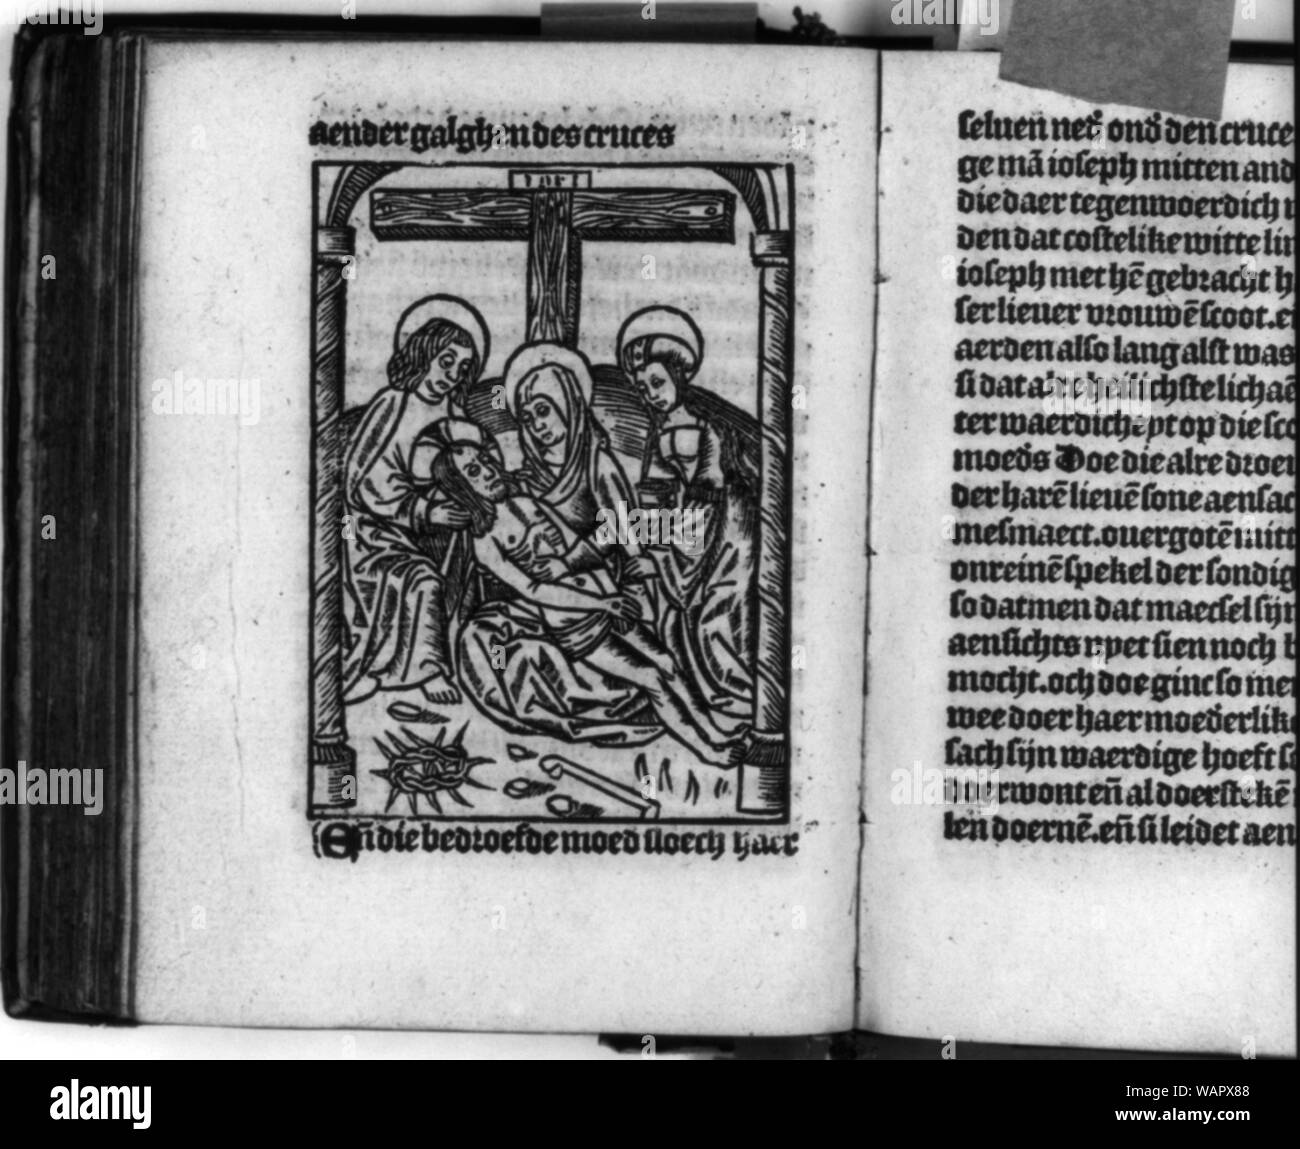 aender galghen des cruces
INRI
En die bedroefde moed sloech haer
seluen ned̄ ond̄ den cruce
ge mā ioseph mitten and
die daer tegenwoerdich
den dat costelike witte lin
ioseph met hē gebracht h
ser lieuer vrouwē scoot. en
aerden also lang alst was
si dat alre heilichste lichaē
ter waerdich op die sco
moed̄s Doe die alre droeu
der harē lieuē sone aensac
mesmaect. ouergotē mitt
onreinē spekel der sondig
so datmen dat maecsel sijn
aensichts nyet sien noch b
mocht. och doe ginc so me
wee doer haer moed̄erlike
sach sijn waerdige hoeft so
verwont eñ al doersteke
len doernē. eñ si leidet aen
alamy
Image ID: WARX88
www.alamy.com